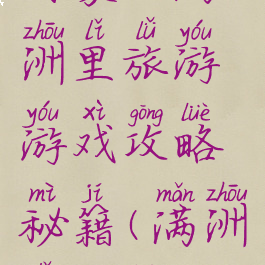 zhōu lǐ lǚ yóu
洲里旅游
yóu xì gōng lüè
游戏攻略
mì jí mǎn zhōu
秘籍(满洲